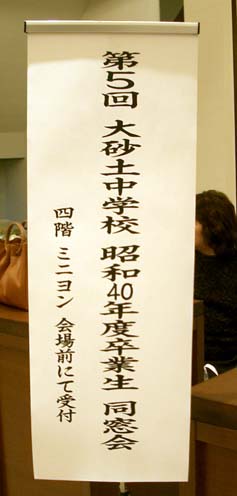 第5回 大砂土中学校 昭和40年度卒業生 同窓会
四階 ミニヨン 会場前にて受付